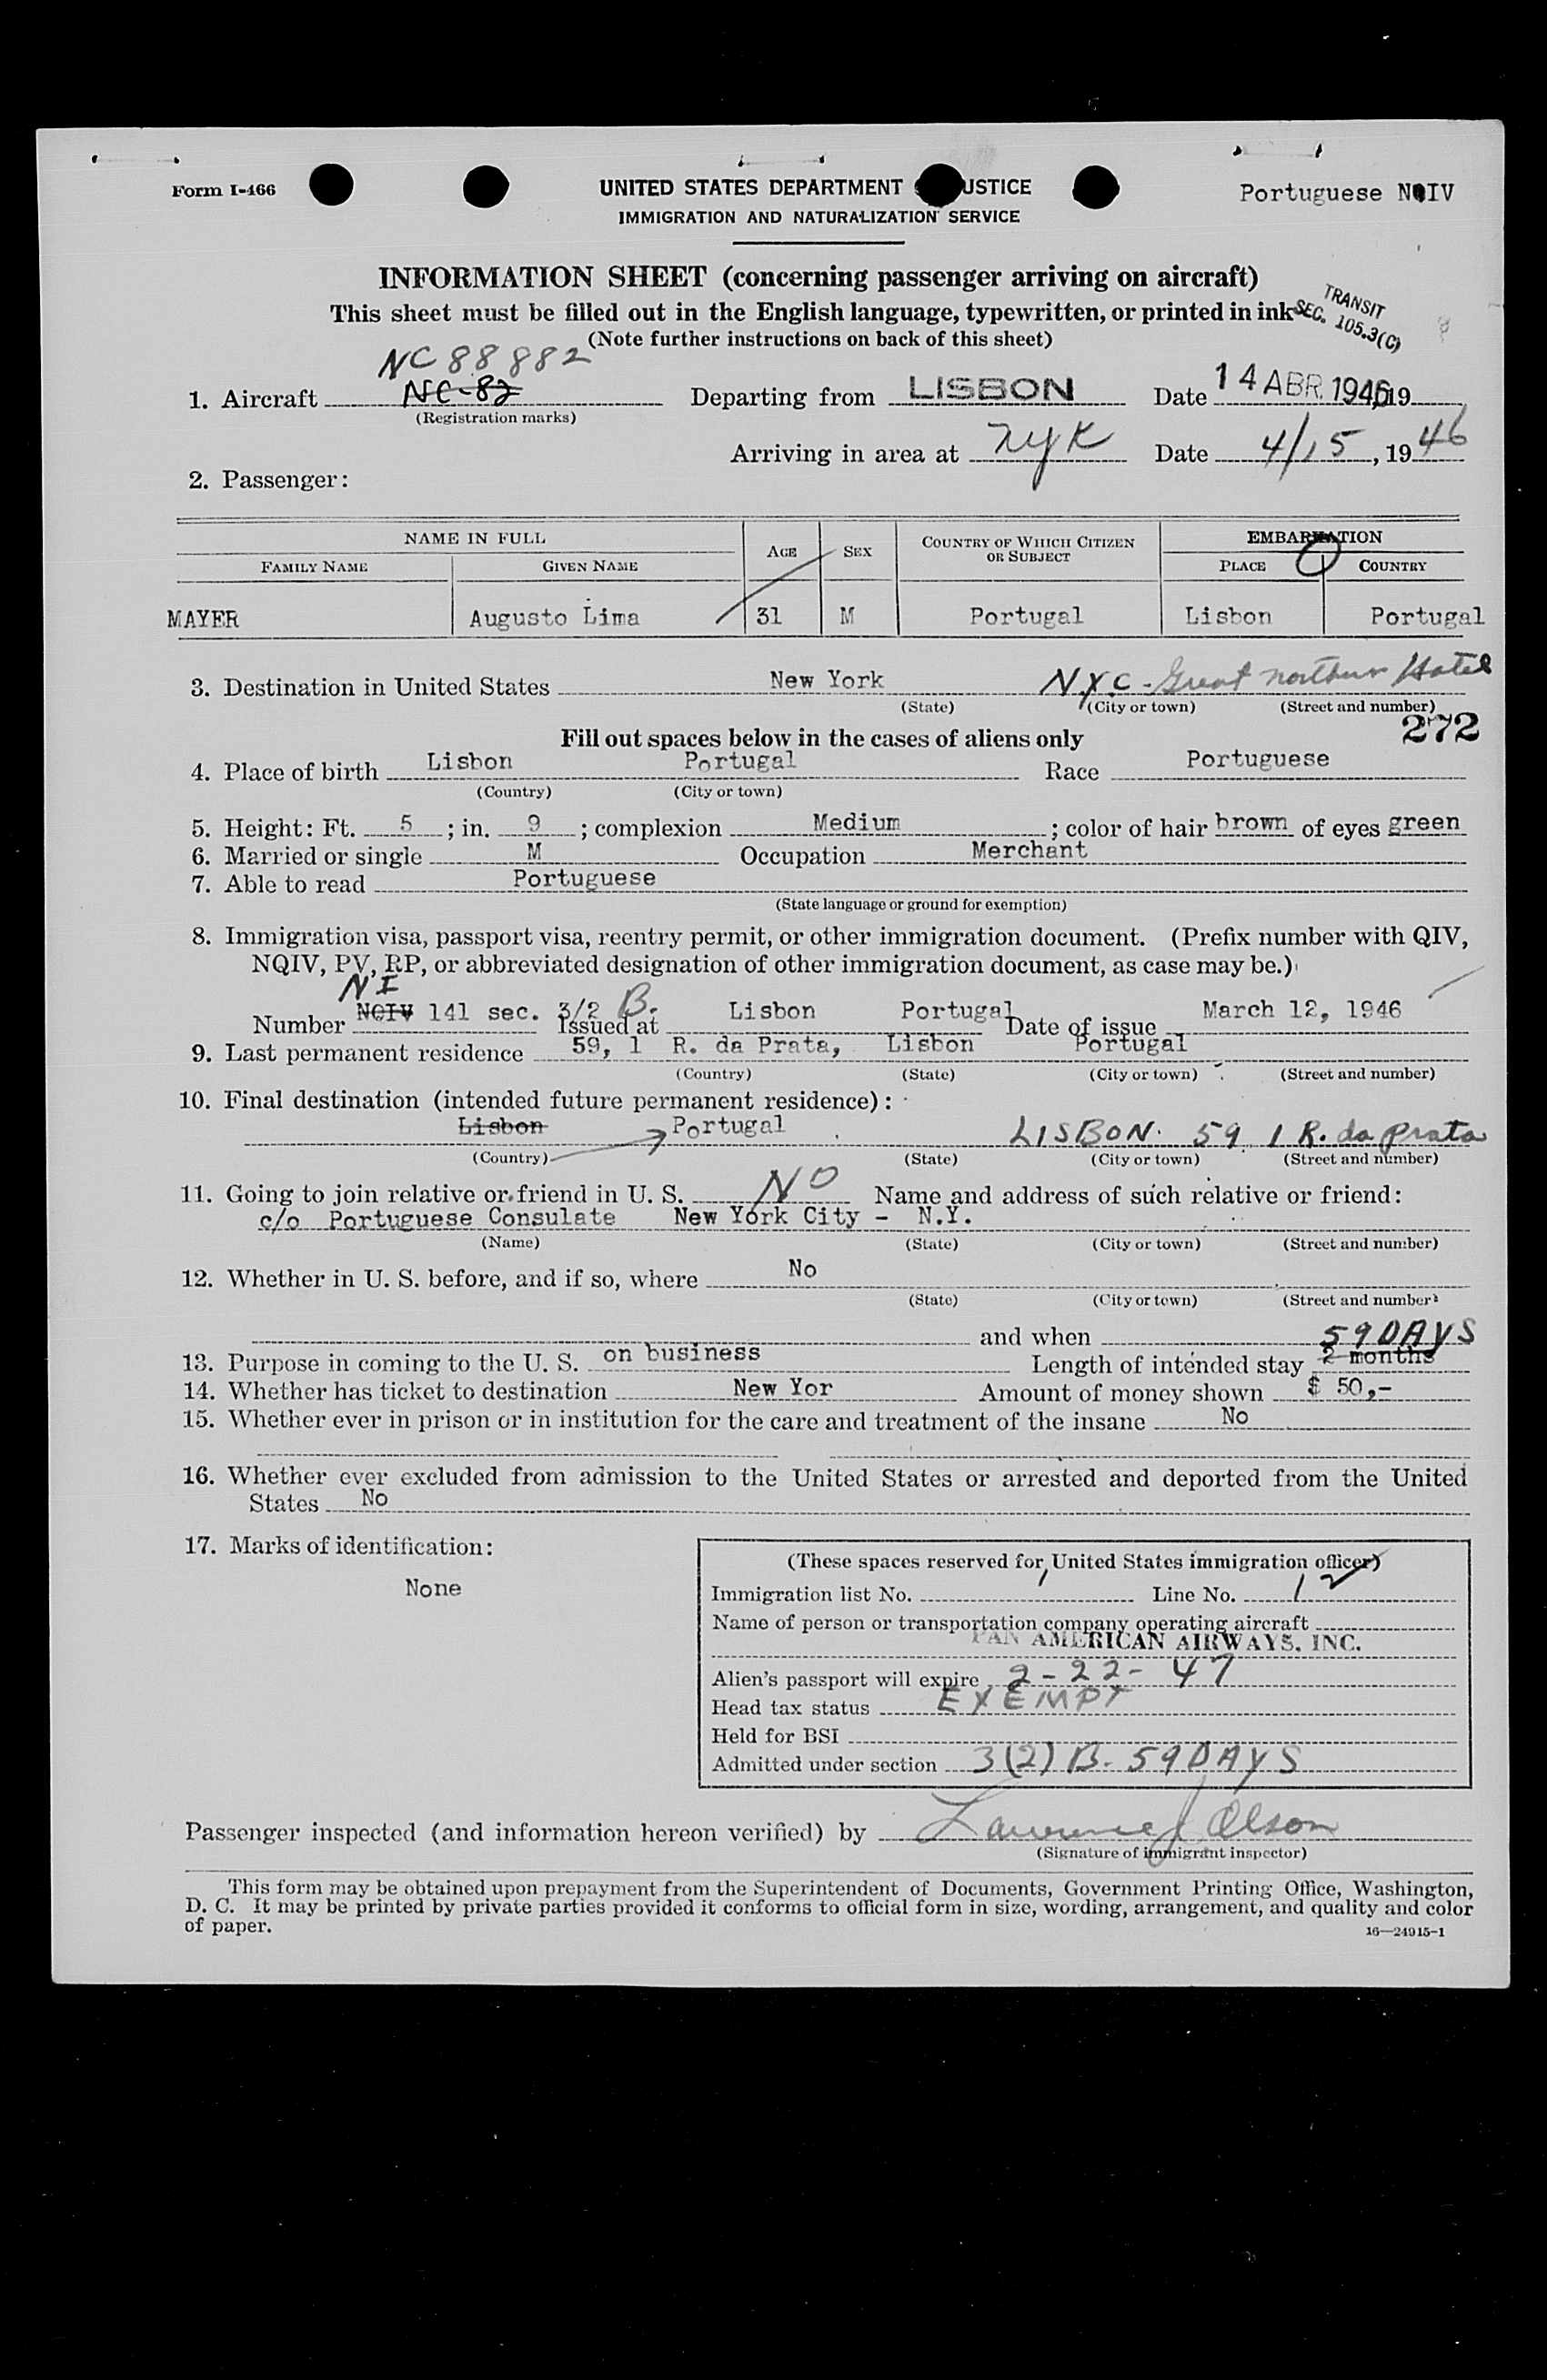 Form I-466
UNITED STATES DEPARTMENT USTICE
IMMIGRATION AND NATURALIZATION SERVICE
Portuguese NQIV
INFORMATION SHEET (concerning passenger arriving on aircraft)
This sheet must be filled out in the English language, typewritten, or printed in ink
TRANSIT
SEC. 105.3(C)
(Note further instructions on back of this sheet)
NC 88882
1. Aircraft NC-82 Departing from LISBON Date 14 ABR. 1946, 19
(Registration marks)
Arriving in area at nyk Date 4/15, 1946
2. Passenger:
NAME IN FULL AGE SEX COUNTRY OF WHICH CITIZEN OR SUBJECT EMBARKATION
FAMILY NAME GIVEN NAME PLACE COUNTRY
MAYER Augusto Lima 31 M Portugal Lisbon Portugal
3. Destination in United States New York N.Y.C - Great northern Hotel
(State) (City or town) (Street and number)
272
Fill out spaces below in the cases of aliens only
4. Place of birth Lisbon Portugal Race Portuguese
(Country) (City or town)
5. Height: Ft. 5; in. 9; complexion Medium; color of hair brown of eyes green
6. Married or single M Occupation Merchant
7. Able to read Portuguese
(State language or ground for exemption)
8. Immigration visa, passport visa, reentry permit, or other immigration document. (Prefix number with QIV,
NQIV, PV, RP, or abbreviated designation of other immigration document, as case may be.)
NI
Number NQIV 141 sec. 3/2 B. Issued at Lisbon Portugal Date of issue March 12, 1946
9. Last permanent residence 59, 1 R. da Prata, Lisbon Portugal
(Country) (State) (City or town) (Street and number)
10. Final destination (intended future permanent residence):
Lisbon Portugal LISBON. 59 1 R. da prata
(Country) (State) (City or town) (Street and number)
11. Going to join relative or friend in U. S. NO Name and address of such relative or friend:
c/o Portuguese Consulate New York City - N.Y.
(Name) (State) (City or town) (Street and number)
12. Whether in U. S. before, and if so, where No
(State) (City or town) (Street and number)
and when
59 DAYS
13. Purpose in coming to the U. S. on business Length of intended stay 2 months
14. Whether has ticket to destination New Yor Amount of money shown $ 50,-
15. Whether ever in prison or in institution for the care and treatment of the insane No
16. Whether ever excluded from admission to the United States or arrested and deported from the United
States No
17. Marks of identification:
None
(These spaces reserved for United States immigration officer)
Immigration list No. 1 Line No. 12
Name of person or transportation company operating aircraft
PAN AMERICAN AIRWAYS, INC.
Alien's passport will expire 2-22-47
Head tax status EXEMPT
Held for BSI
Admitted under section 3(2) B. 59 DAYS
Passenger inspected (and information hereon verified) by Lawrence J Olson
(Signature of immigrant inspector)
This form may be obtained upon prepayment from the Superintendent of Documents, Government Printing Office, Washington,
D. C. It may be printed by private parties provided it conforms to official form in size, wording, arrangement, and quality and color
of paper.
16—24915-1